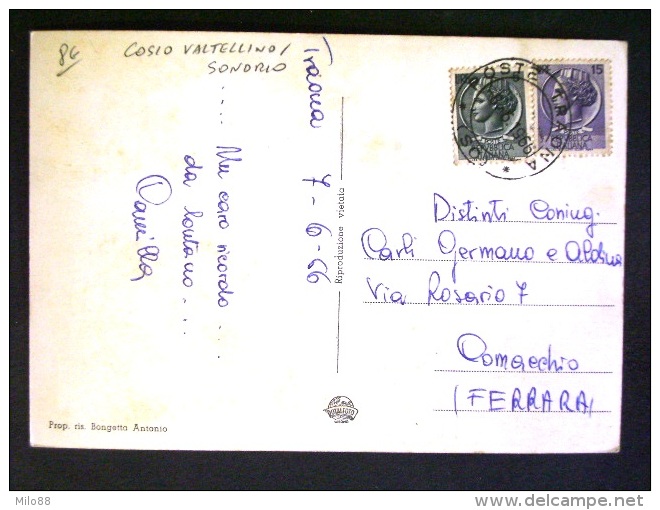 8€
COSIO VALTELLINO/
SONDRIO
Traona 7-6-66
.... Un caro ricordo ...
da lontano ...
Danilla
Riproduzione vietata
POSTE TRAONA
15
Distinti Coniug.
Carli Germano e Aldina
Via Rosario 7
Comacchio
(FERRARA)
Prop. ris. Bongetta Antonio
Milo88
delcampe.net